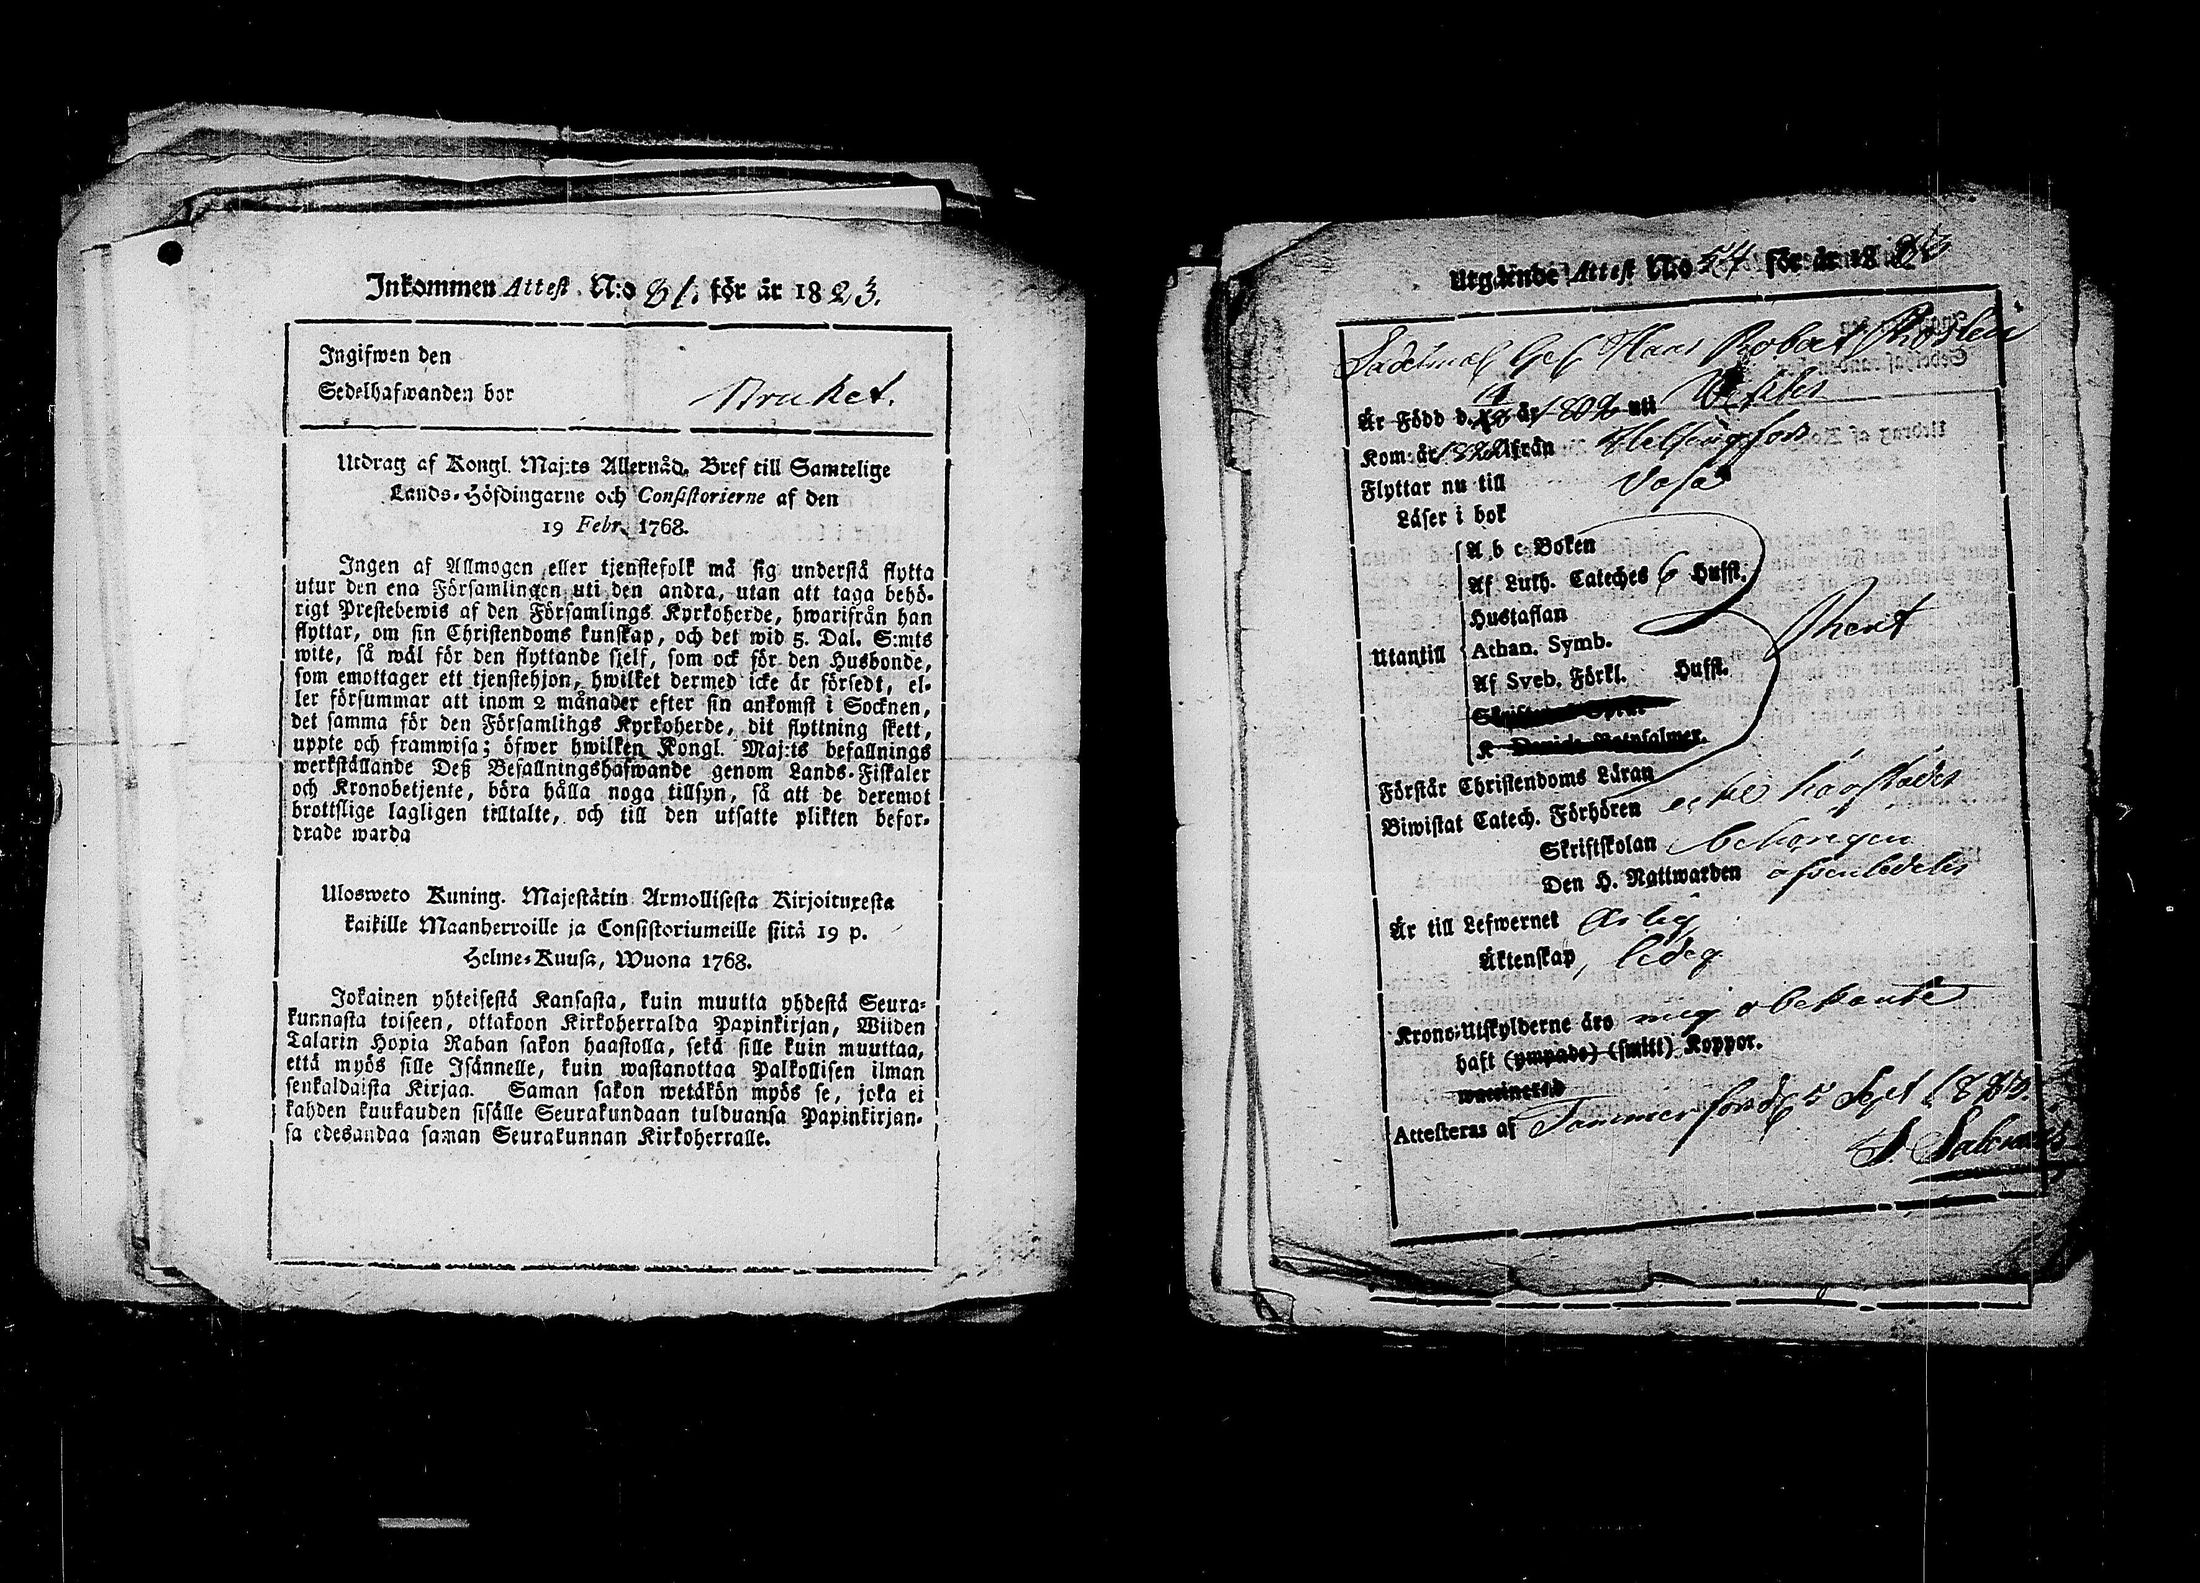 Inkommen Attest. N:o 81. för år 1823.
Ingifwen den
Sedelhafwanden bor Bruket.
Utdrag af Kongl. Maj:ts Allernåd. Bref till Samtelige
Lands-Höfdingarne och Consistorierne af den
19 Febr. 1768.
Ingen af Allmogen eller tjenstefolk må sig understå flytta
utur den ena Församlingen uti den andra, utan att taga behö-
rigt Prestebewis af den Församlings Kyrkoherde, hwarifrån han
flyttar, om sin Christendoms kunskap, och det wid 5. Dal. S:mts
wite, så wäl för den flyttande sjelf, som ock för den Husbonde,
som emottager ett tjenstehjon, hwilket dermed icke är försedt, el-
ler försummar att inom 2 månader efter sin ankomst i Socknen,
det samma för den Församlings Kyrkoherde, dit flyttning skett,
uppte och framwisa; öfwer hwilken Kongl. Maj:ts befallnings
werkställande Deß Befallningshafwande genom Lands-Fiskaler
och Kronobetjente, böra hålla noga tillsyn, så att de deremot
brottslige lagligen tilltalte, och till den utsatte plikten befor-
drade warda
Ulosweto Kuning. Majestätin Armollisesta Kirjoituxesta
kaikille Maanherroille ja Consistoriumeille siitä 19 p.
Helme-Kuusa, Wuona 1768.
Jokainen yhteisestä Kansasta, kuin muutta yhdestä Seura-
kunnasta toiseen, ottakoon Kirkoherralda Papinkirjan, Wiiden
Talarin Hopia Rahan sakon haastolla, sekä sille kuin muuttaa,
että myös sille Isännelle, kuin wastanottaa Palkollisen ilman
senkaldaista Kirjaa. Saman sakon wetäkön myös se, joka ei
kahden kuukauden sisälle Seurakundaan tulduansa Papinkirjan-
sa edesandaa saman Seurakunnan Kirkoherralle.
Utgående Attest N:o 54 för år 1823
Sadelmak Ges Hans Robert
Är Född d. år 180 uti
Kom år 1822 ifrån Helsingfors
Flyttar nu till Vasa
Läser i bok
A b c Boken
Af Luth. Cateches 6 Hufst.
Hustaflan
Utantill Athan. Symb.
Af Sveb. Förkl. Hufst.
K Davids Botpsalmer.
Förstår Christendoms Läran
Biwistat Catech. Förhören
Skriftskolan behörigen
Den H. Nattwarden afven ledeles
Är till Lefwernet ärlig
Äktenskap, ledig
Krono-Utskylderne äro mig obekante
haft (ympade) (smitt) Koppor.
waccinerad
Attesteras af Tammerfors d. 5 Sept 1823.